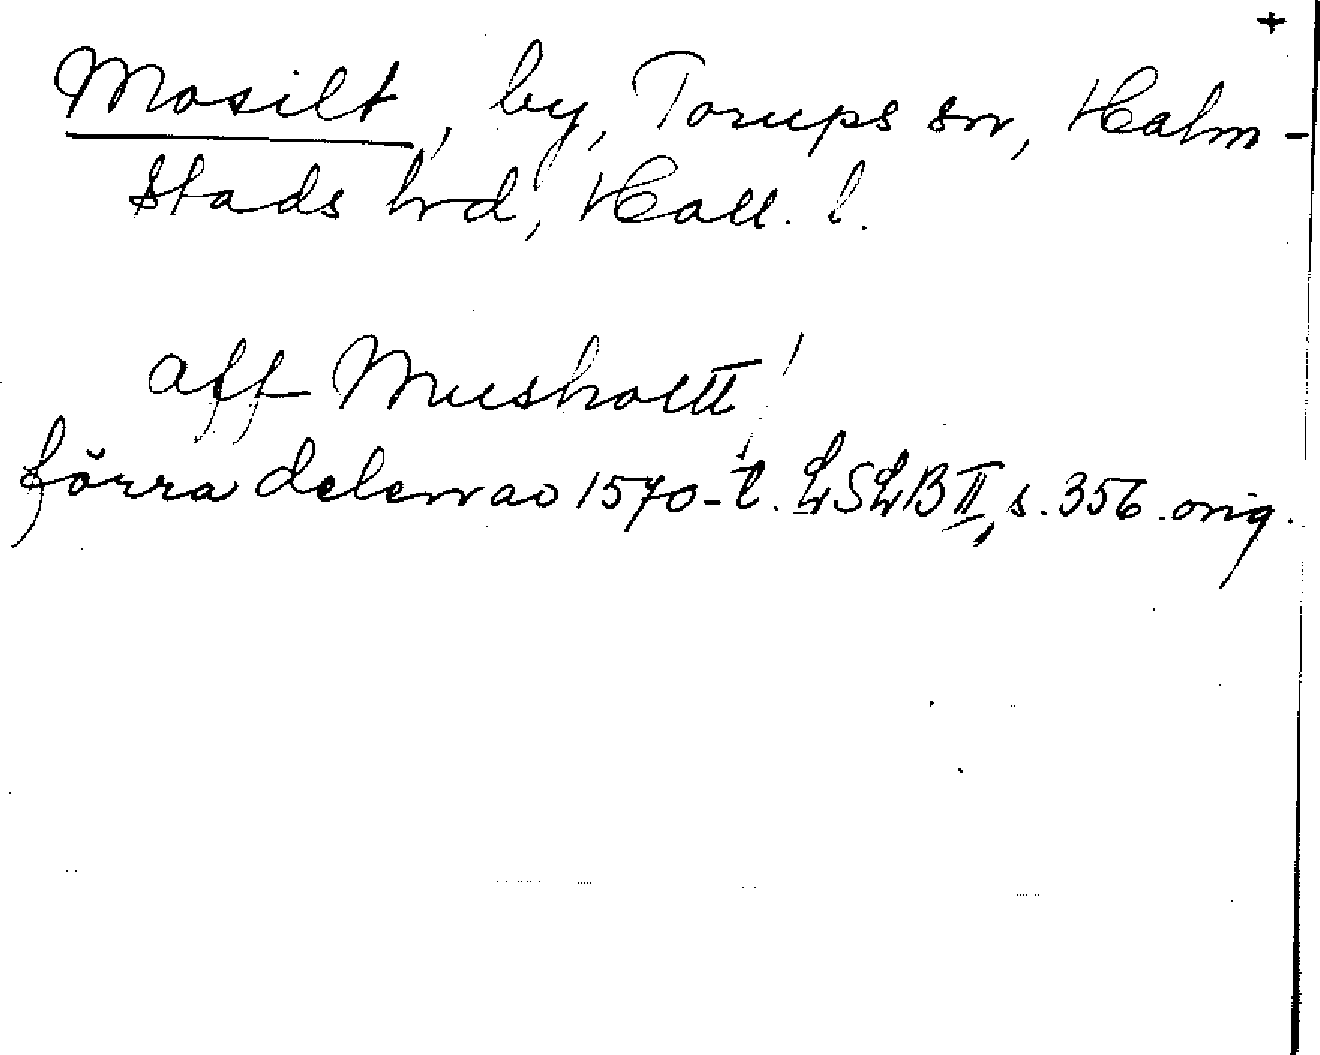 +
Mosilt, by, Torups sn, Halm-
stads hrd, Hall. l.
aff Musholtt!
förra delen av 1570-t. LSLB II, s. 356. orig.